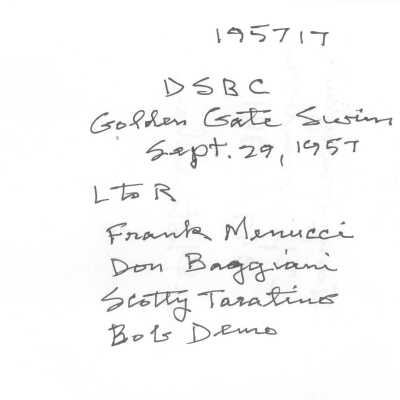 195717
DSBC
Golden Gate Swim
Sept. 29, 1957
L to R
Frank Menucci
Don Baggiani
Scotty Taratino
Bob Demo